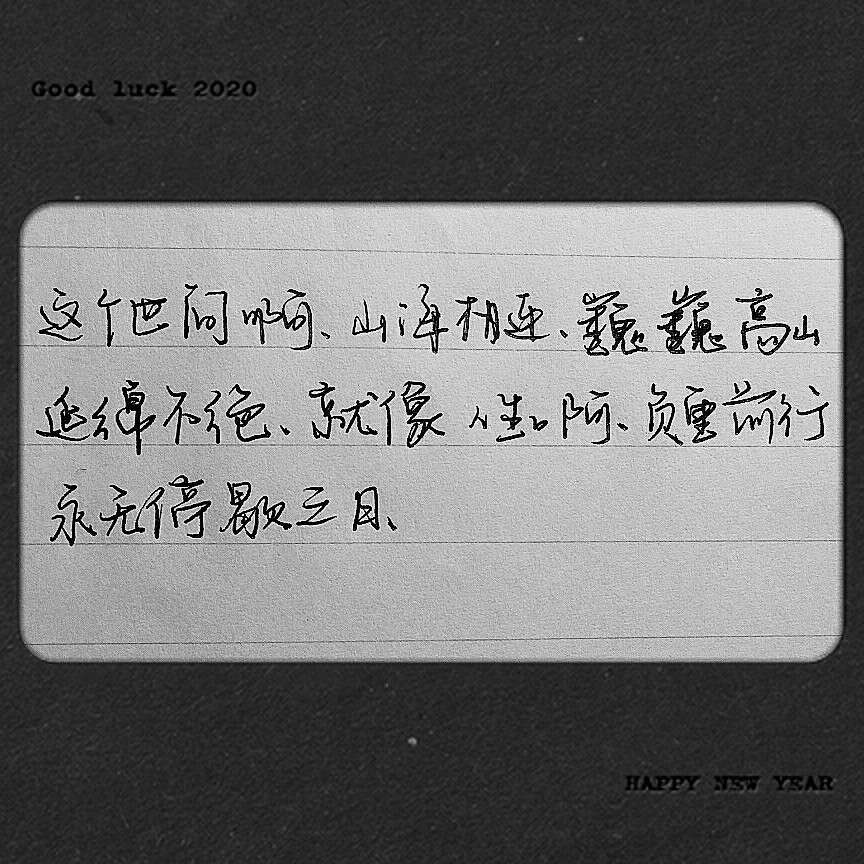 Good luck 2020
这个世间啊、山海相连、巍巍高山
延绵不绝、就像人生啊、负重前行
永无停歇之日、
HAPPY NEW YEAR